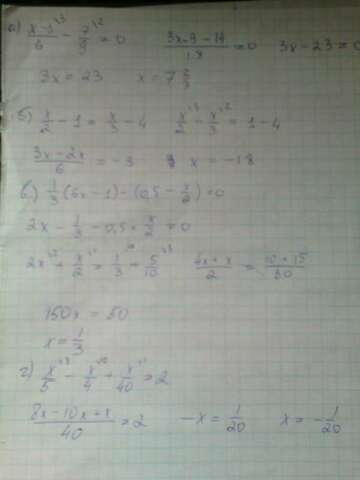 а) (x-3)/6 - 7/9 = 0    (3x-9-14)/18 = 0    3x-23=0
3x = 23    x = 7 2/3
б) x/2 - 1 = x/3 - 4    x/2 - x/3 = 1-4
(3x-2x)/6 = -3    x = -18
в) 1/3 (6x-1) - (0,5 - x/2) = 0
2x - 1/3 - 0,5 + x/2 = 0
2x + x/2 = 1/3 + 5/10    (4x+x)/2 = (10+15)/30
150x = 50
x = 1/3
г) x/5 - x/4 + x/40 = 2
(8x-10x+x)/40 = 2    -x = 1/20    x = -1/20